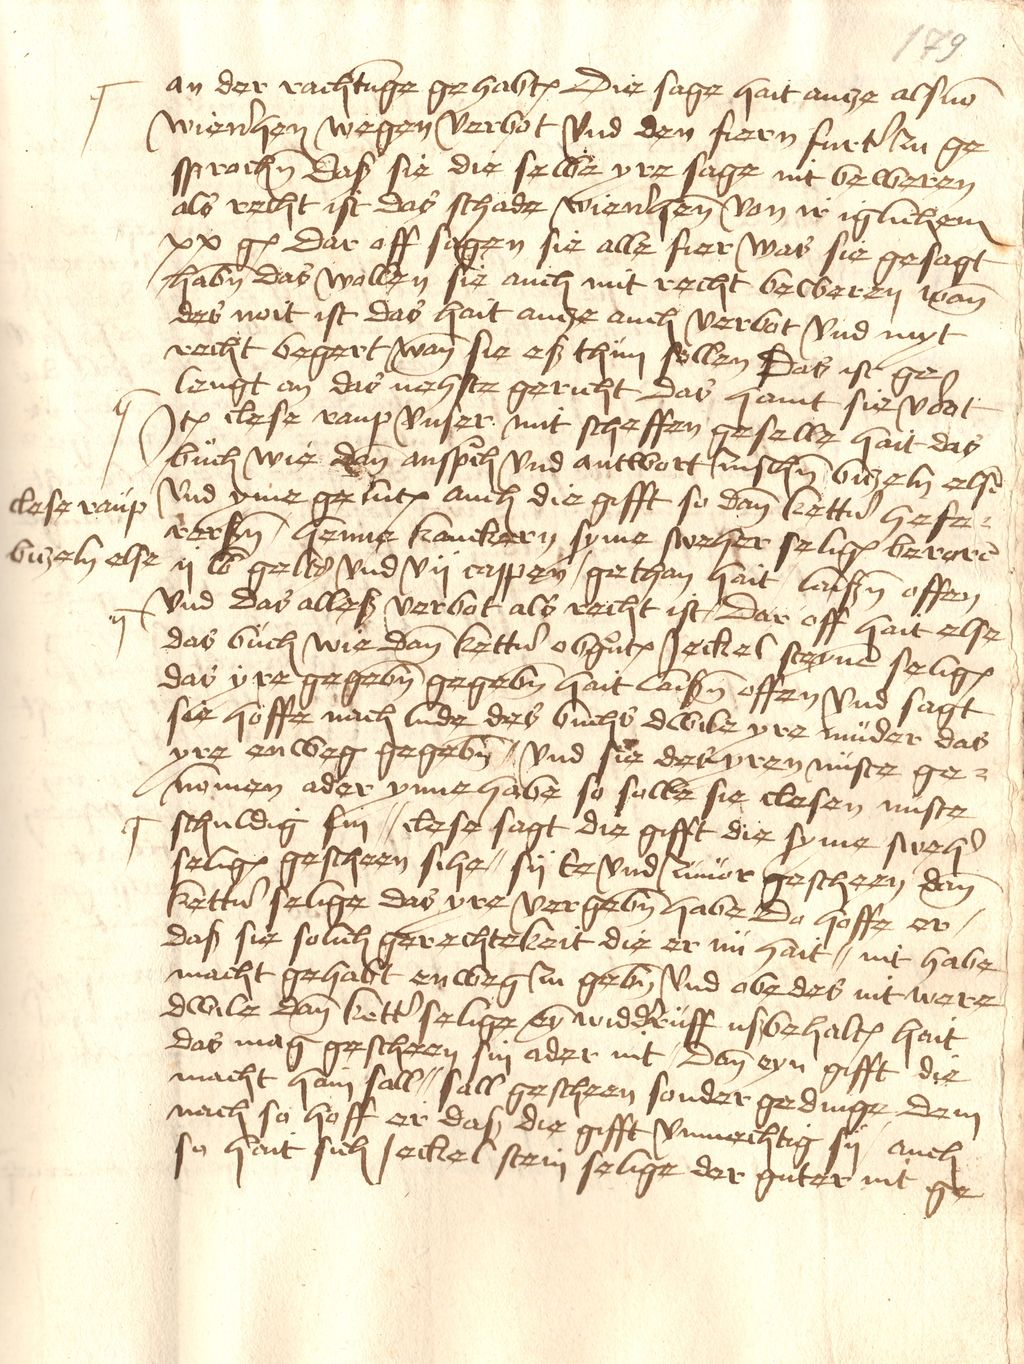 179
an der rachtunge gehabt Die sage hait antze als von
wienhen wegen verbot vnd den fiern furter zu ge
sprochen Daß sie die selbe yre sage nit beweren
als recht ist das schade wienhen von ir iglichem
xx g Dar off sagen sie alle fier was sie gesagt
haben das wollen sie auch mit recht beweren wan
des noit ist das hait antze auch verbot vnd myt
recht begert wan sie eß thun sollen Das ist ge
lengt an das nehste gericht das hant sie verbot
It clese raup vnser mit scheffen geselle hait das
buch wie dan ansprach vnd antwort zuschen butzeln elsen
clese raup
vnd yme gelut auch die gifft so dan kettern hese
rerßen henne kanckern syme sweher selig beroren
butzeln else
ij lb gelts vnd vij cappen gethan hait laißen offen
vnd das alleß verbot als recht ist Dar off hait else
das buch wie dan ketter obgnt Jeckel steyn selig
das yre gegeben gegeben hait laißen offen vnd sagt
sie hoffe nach lude des buchs dwile yre muder das
yre enweg gegeben vnd sie des yren nuste ge
nomen ader ynne habe so solle sie clesen nuste
schuldig sin clese sagt die gifft die syme sweher
selig gescheen sihe sij ee vnd zuuor gescheen dan
ketter selige das yre vergeben habe Do hoffe er
daß sie solich gerechtekeit die er nu hait nit habe
macht gehabt enweg zu geben vnd obe des nit were
dwile dan ketter selige eyn widderruff ußbehalt hait
das mag gescheen sin ader nit Dan eyn gifft die
macht hain sall sall gescheen sonder gedinge dem
nach so hoff er daß die gifft vnmechtig sij auch
so hait sich Jeckel stein selige der guter nit ge